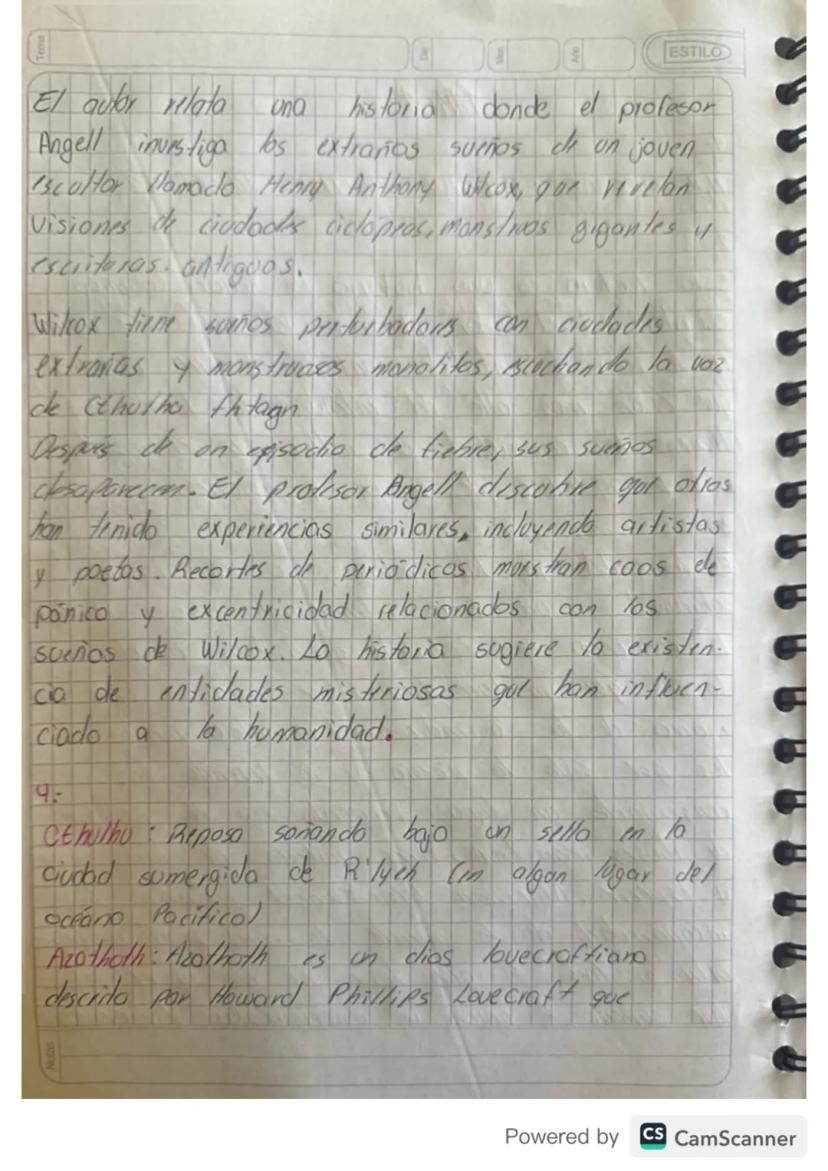 Tema
Día
Mes
Año
ESTILO
El autor relata una historia donde el profesor
Angell investiga los extraños sueños de un joven
escultor llamado Henry Anthony Wilcox, que revelan
visiones de ciudades ciclopeas, monstruos gigantes y
escrituras antiguas.
Wilcox tiene sueños perturbadores con ciudades
extrañas y monstruosos monolitos, escuchando la voz
de Cthulhu fhtagn
Después de un episodio de fiebre, sus sueños
desaparecen. El profesor Angell descubre que otros
han tenido experiencias similares, incluyendo artistas
y poetas. Recortes de periódicos muestran caos de
pánico y excentricidad relacionados con los
sueños de Wilcox. La historia sugiere la existen-
cia de entidades misteriosas que han influen-
ciado a la humanidad.
4.-
Cthulhu: Reposa soñando bajo un sello en la
ciudad sumergida de R'lyeh (en algun lugar del
océano Pacifico)
Azathoth: Azathoth es un dios lovecraftiano
descrito por Howard Phillips Lovecraft que
Notas
Powered by CS CamScanner